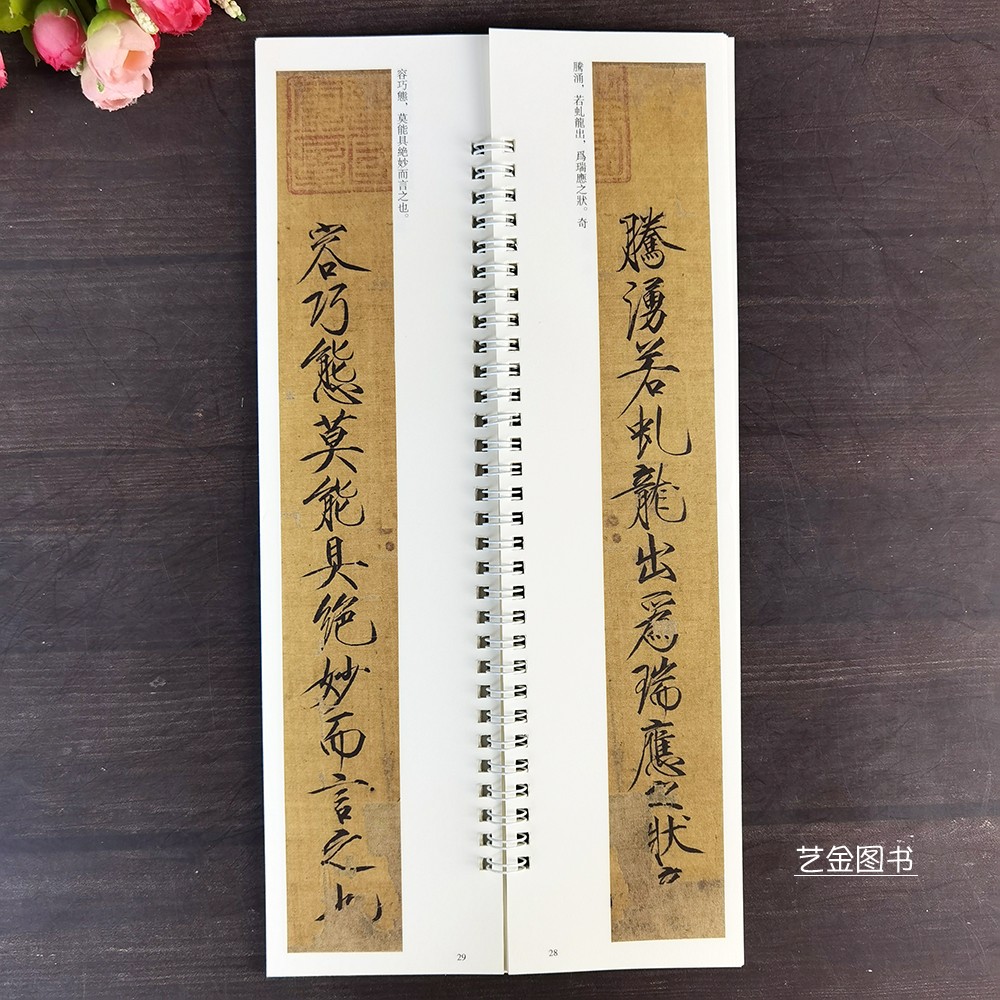 騰涌，若虬龍出，爲瑞應之狀。奇
騰湧若虬龍出爲瑞應之狀
28
容巧態，莫能具絶妙而言之也。
容巧態莫能具絶妙而言之也
29
艺金图书